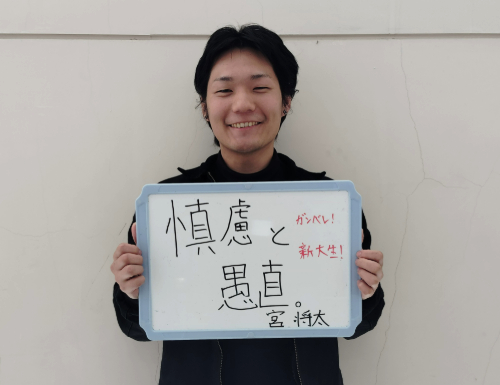 慎慮と
愚直。
ガンバレ!
新大生!
宮 将太